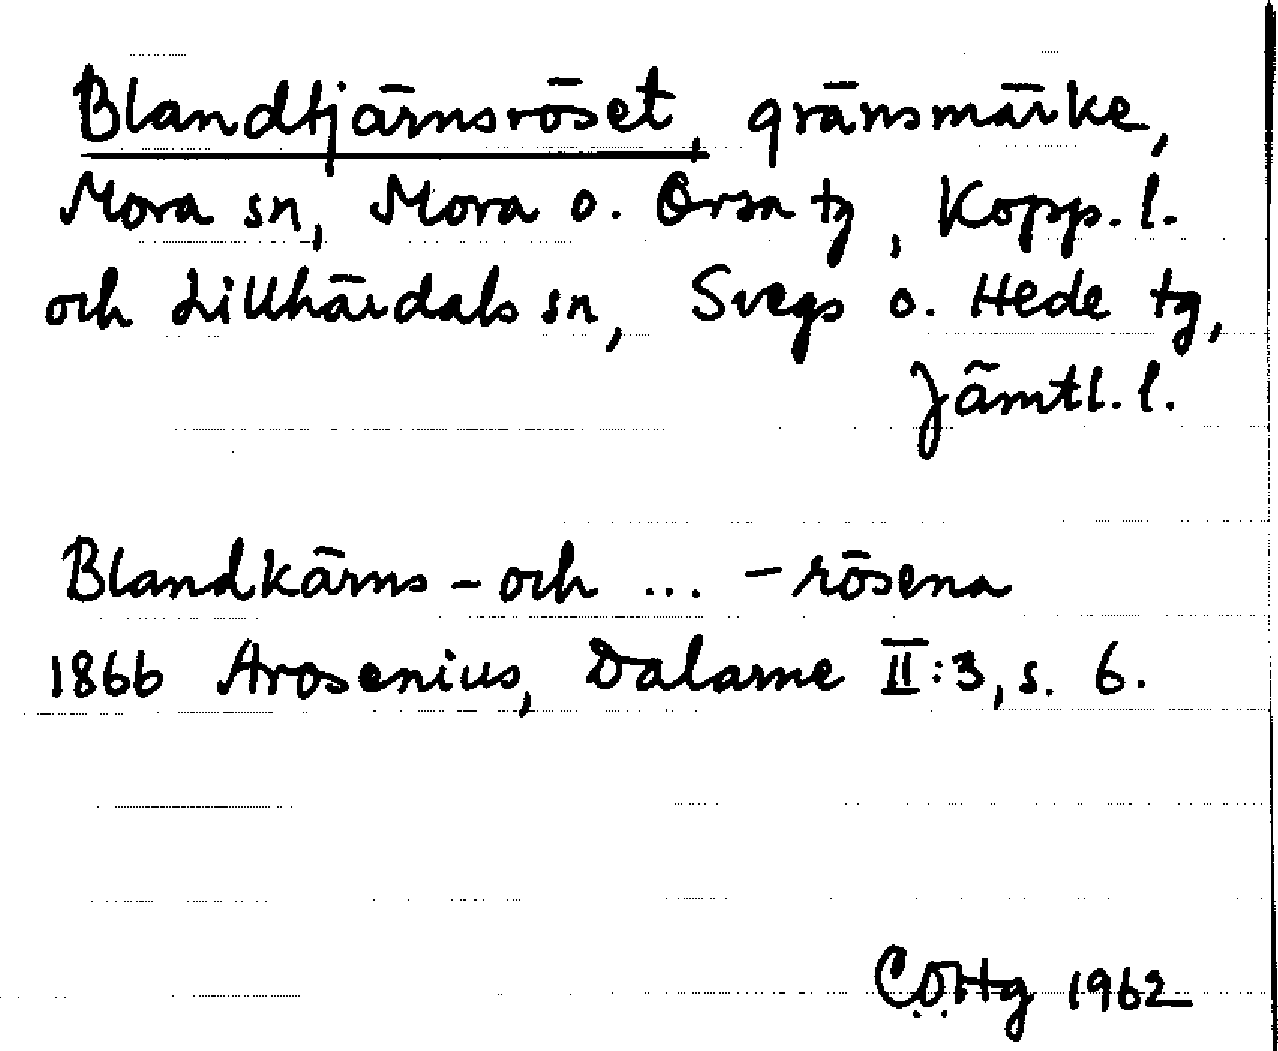 Blandtjärnsröset, gränsmärke,
Mora sn, Mora o. Orsa tg, Kopp. l.
och Lillhärdals sn, Svegs o. Hede tg,
Jämtl. l.
Blandkärns- och ... -rösena
1866 Arosenius, Dalarne II:3, s. 6.
CÖHg 1962